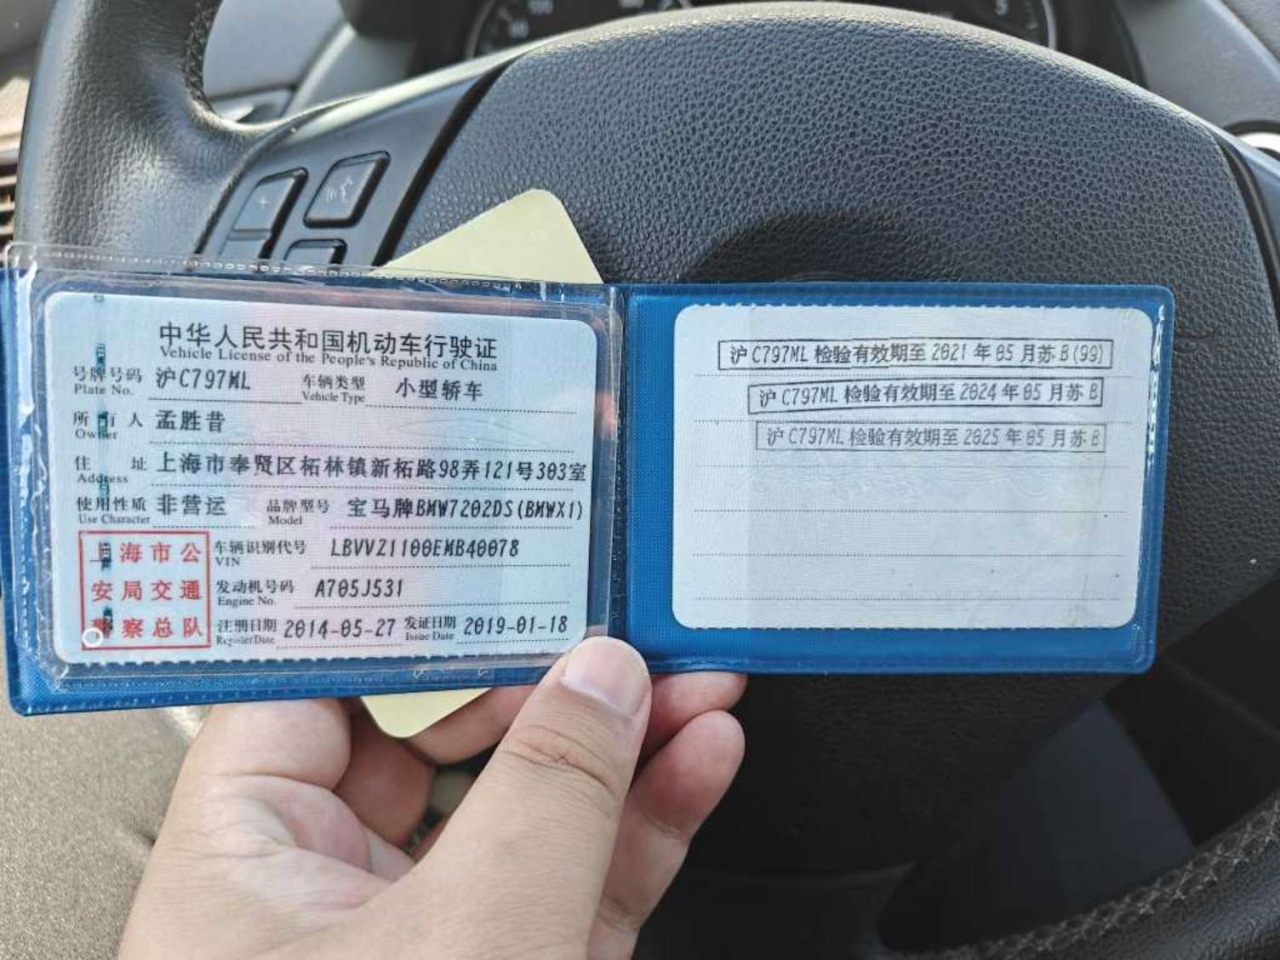 中华人民共和国机动车行驶证
Vehicle License of the People's Republic of China
号牌号码 沪C797ML 车辆类型 小型轿车
Plate No. Vehicle Type
所有人 孟胜昔
Owner
住址 上海市奉贤区柘林镇新柘路98弄121号303室
Address
使用性质 非营运 品牌型号 宝马牌BMW7202DS(BMWX1)
Use Character Model
上海市公
安局交通
警察总队
车辆识别代号 LBVVZ1100EMB40078
VIN
发动机号码 A705J531
Engine No.
注册日期 2014-05-27 发证日期 2019-01-18
Register Date Issue Date
沪C797ML 检验有效期至 2021 年 05 月苏 B(99)
沪C797ML 检验有效期至 2024 年 05 月苏 B
沪C797ML 检验有效期至 2025 年 05 月苏 B